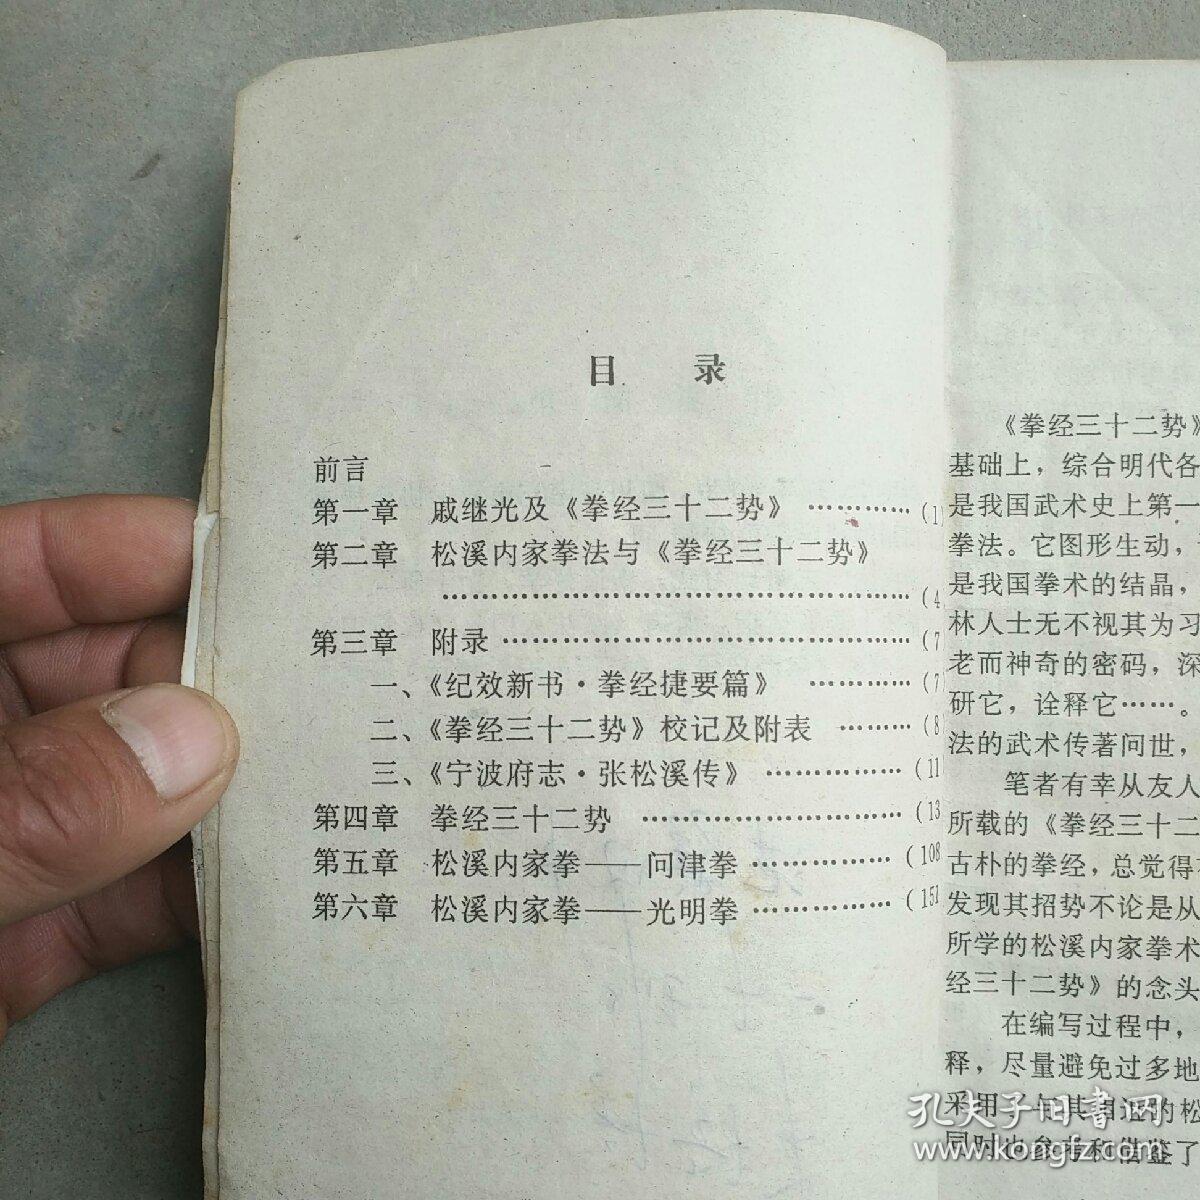 目 录
前言
第一章 戚继光及《拳经三十二势》 …………(1)
第二章 松溪内家拳法与《拳经三十二势》
……………………………………………(4
第三章 附录 ………………………………………(7
一、《纪效新书·拳经捷要篇》 …………(7
二、《拳经三十二势》校记及附表 ………(8
三、《宁波府志·张松溪传》 ……………(11
第四章 拳经三十二势 ………………………(13
第五章 松溪内家拳——问津拳 ……………(108
第六章 松溪内家拳——光明拳 ……………(151
《拳经三十二势》
基础上，综合明代各
是我国武术史上第一
拳法。它图形生动，
是我国拳术的结晶，
林人士无不视其为习
老而神奇的密码，深
研它，诠释它……。
法的武术传著问世，
笔者有幸从友人
所载的《拳经三十二
古朴的拳经，总觉得
发现其招势不论是从
所学的松溪内家拳术
经三十二势》的念头
在编写过程中，
释，尽量避免过多地
采用了与其相近的松
同时也参考和借鉴了
孔夫子旧书网
www.kongfz.com